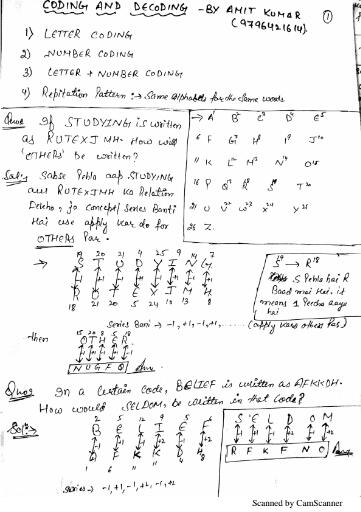 CODING AND DECODING -BY AMIT KUMAR
(9796421614).
①
1) LETTER CODING
2) NUMBER CODING
3) LETTER + NUMBER CODING
4) Repitation Pattern :→ Same alphabets for the same words
Ques If STUDYING is written
as RUTEXJMH. How will
'OTHERS' be written?
Sol:- Sabse Pehle aap STUDYING
aur RUTEXJMH Ka Relation
Dekho, jo concept/series Banti
Hai use apply kar do for
OTHERS Par.
→ A B² C³ D⁴ E⁵
6 F G⁷ H⁸ I⁹ J¹⁰
11 K L¹² M¹³ N¹⁴ O¹⁵
16 P Q¹⁷ R¹⁸ S¹⁹ T²⁰
21 U V²² W²³ X²⁴ Y²⁵
26 Z.
19 20 21 4 25 9 14 7
→ S T U D Y I N G
R U T E X J M H
18 21 20 5 24 10 13 8
S¹⁹ → R¹⁸
S Pehle hai R
Baad mai hai. it
means 1 Peeche aaya
hai
Series Bani → -1, +1, -1, +1, ...... (apply karo others par)
then
15 20 8 5 18
O T H E R
N U G F Q Ans
Ques In a Certain code, BELIEF is written as AFKKDH.
How would SELDOM be written in that Code?
Sol:-
2 5 12 9 5 6
B E L I E F
-1 +1 -1 +2 -1 +2
A F K K D H
1 6 11 11 4 8
S E L D O M
R F K F N O Ans
Series → -1, +1, -1, +2, -1, +2
Scanned by CamScanner